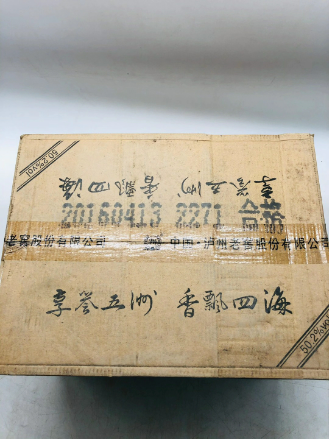 50.2%vol
享誉五洲 香飘四海
20160413 2271
老窖股份有限公司 中国·泸州老窖股份有限公司
享誉五洲 香飘四海
50.2%vol